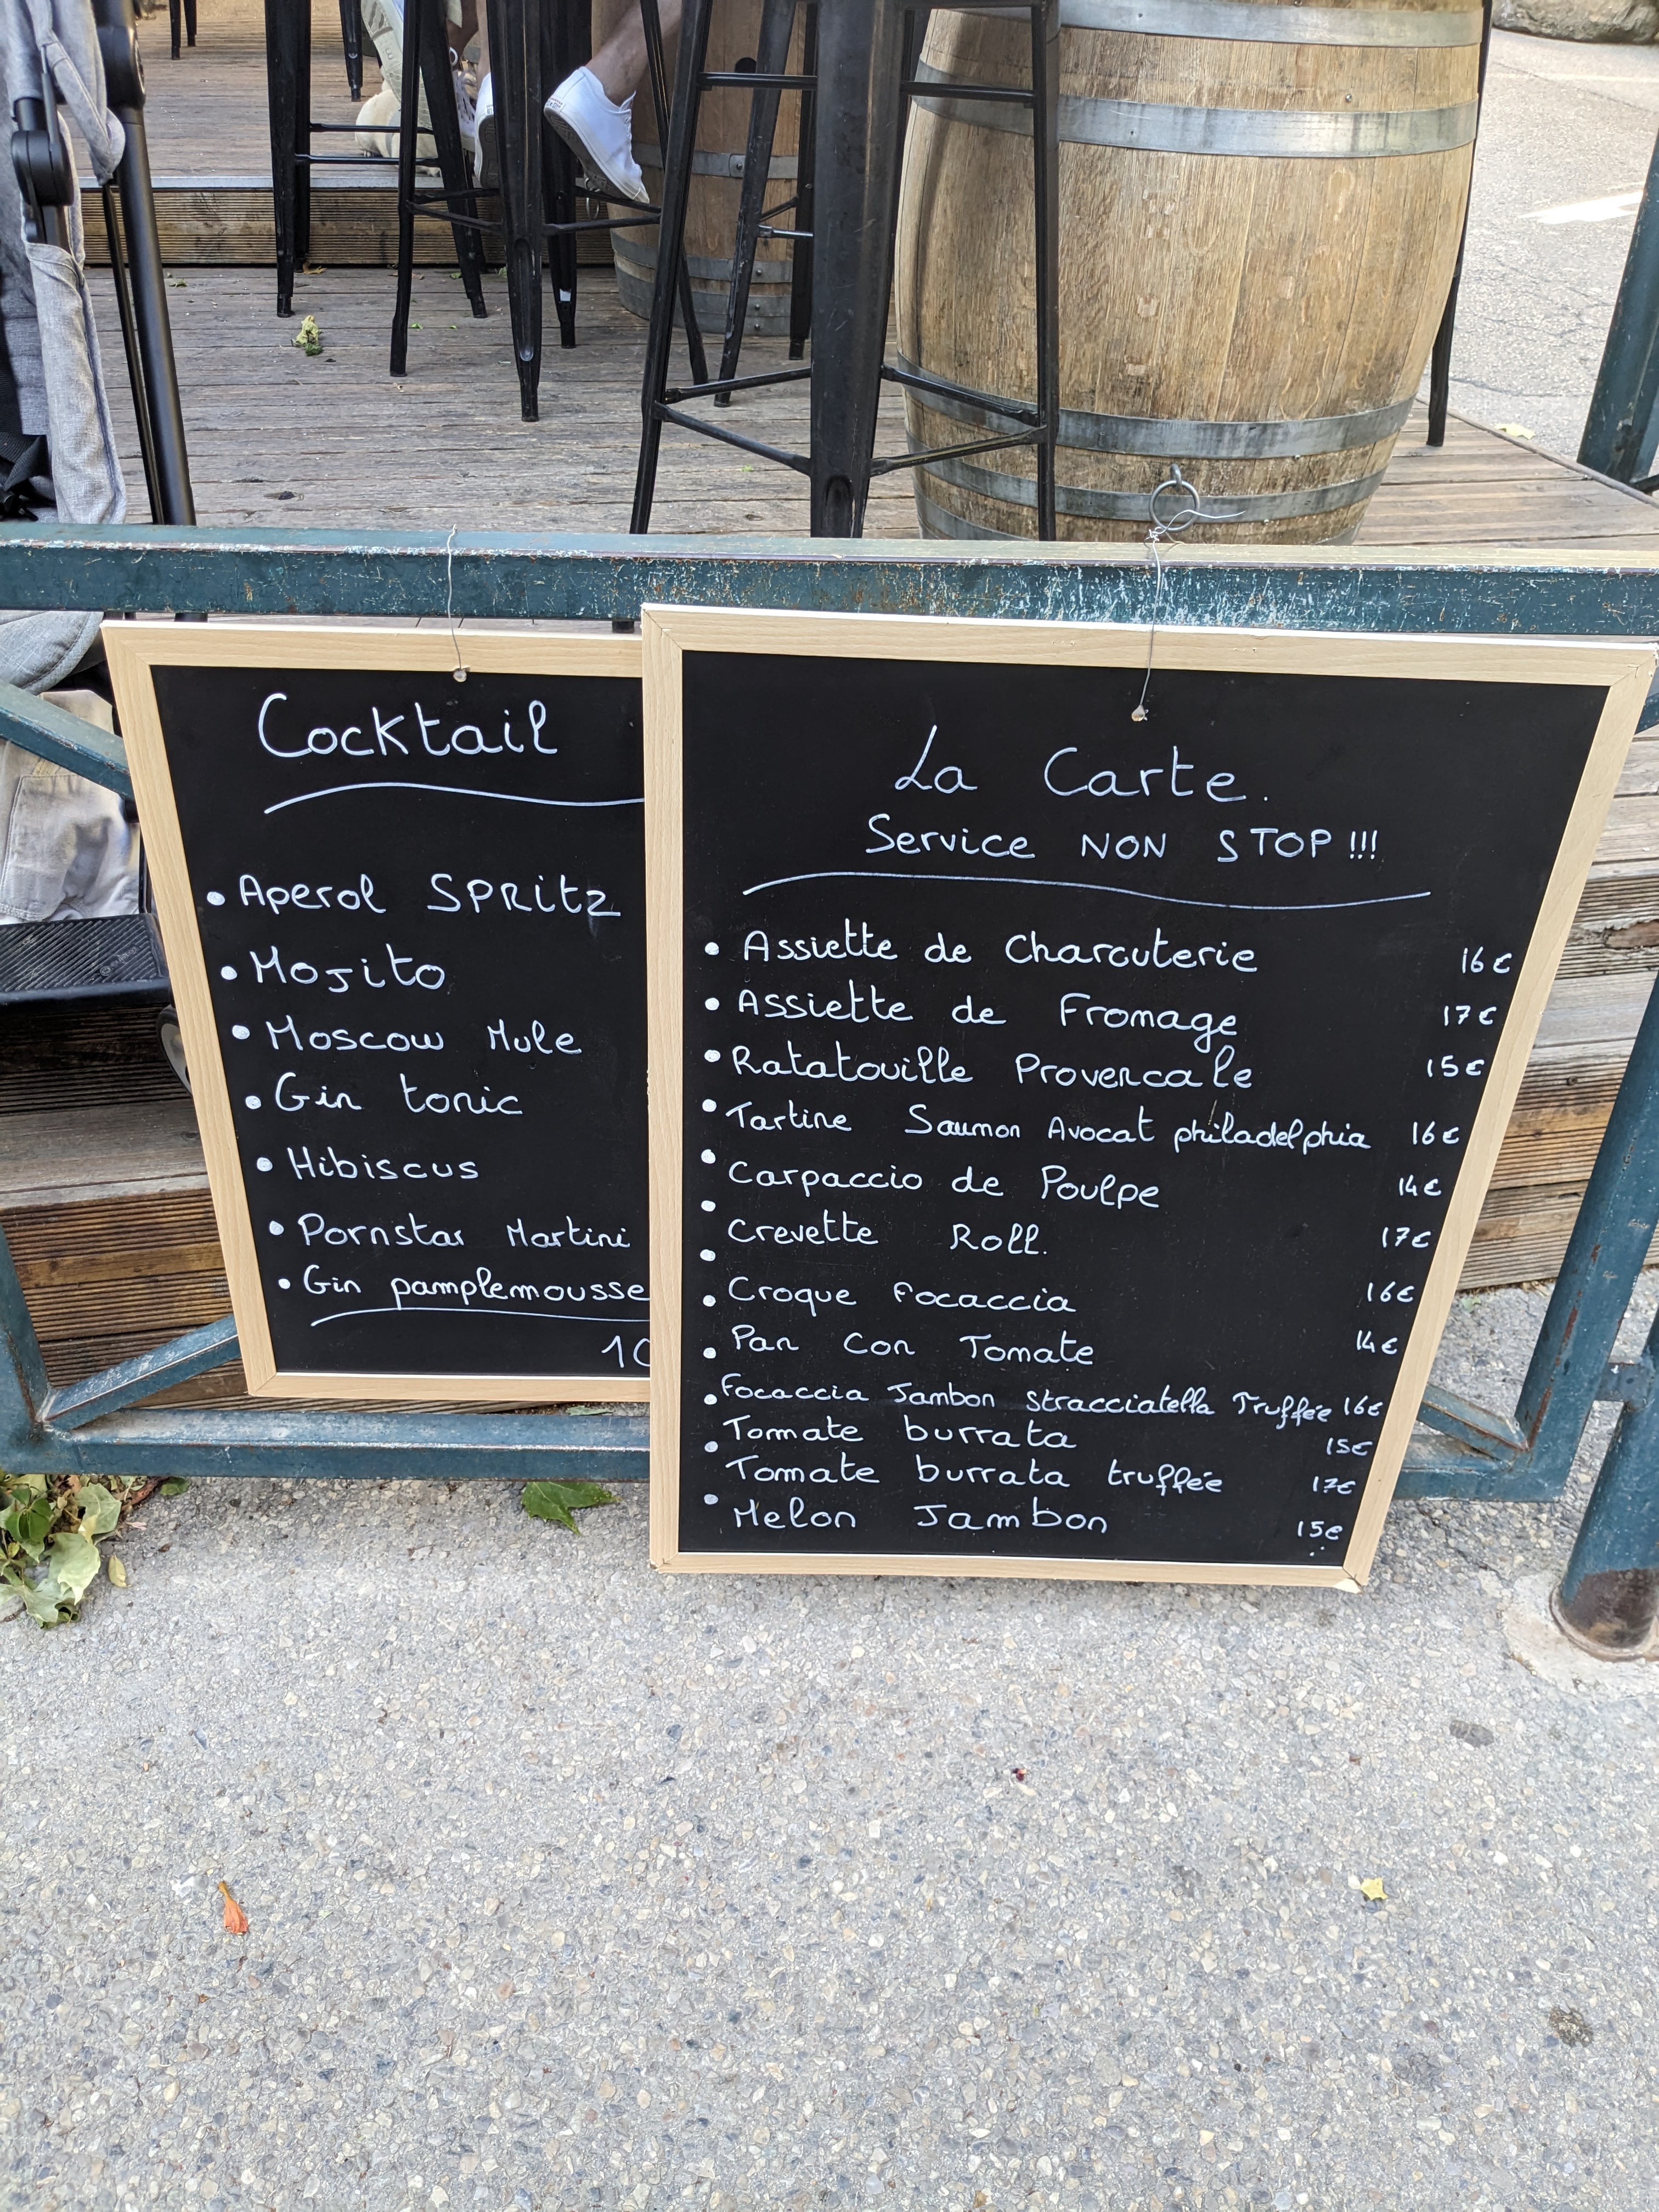 Cocktail
• Aperol SPRitz
• Mojito
• Moscow Mule
• Gin tonic
• Hibiscus
• Pornstar Martini
• Gin pamplemousse
10
La Carte.
Service NON STOP!!!
• Assiette de Charcuterie 16€
• Assiette de Fromage 17€
• Ratatouille Provencale 15€
• Tartine Saumon Avocat philadelphia 16€
• Carpaccio de Poulpe 14€
• Crevette Roll. 17€
• Croque focaccia 16€
• Pan Con Tomate 14€
• Focaccia Jambon Stracciatella Truffée 16€
• Tomate burrata 15€
• Tomate burrata truffée 17€
• Melon Jambon 15€